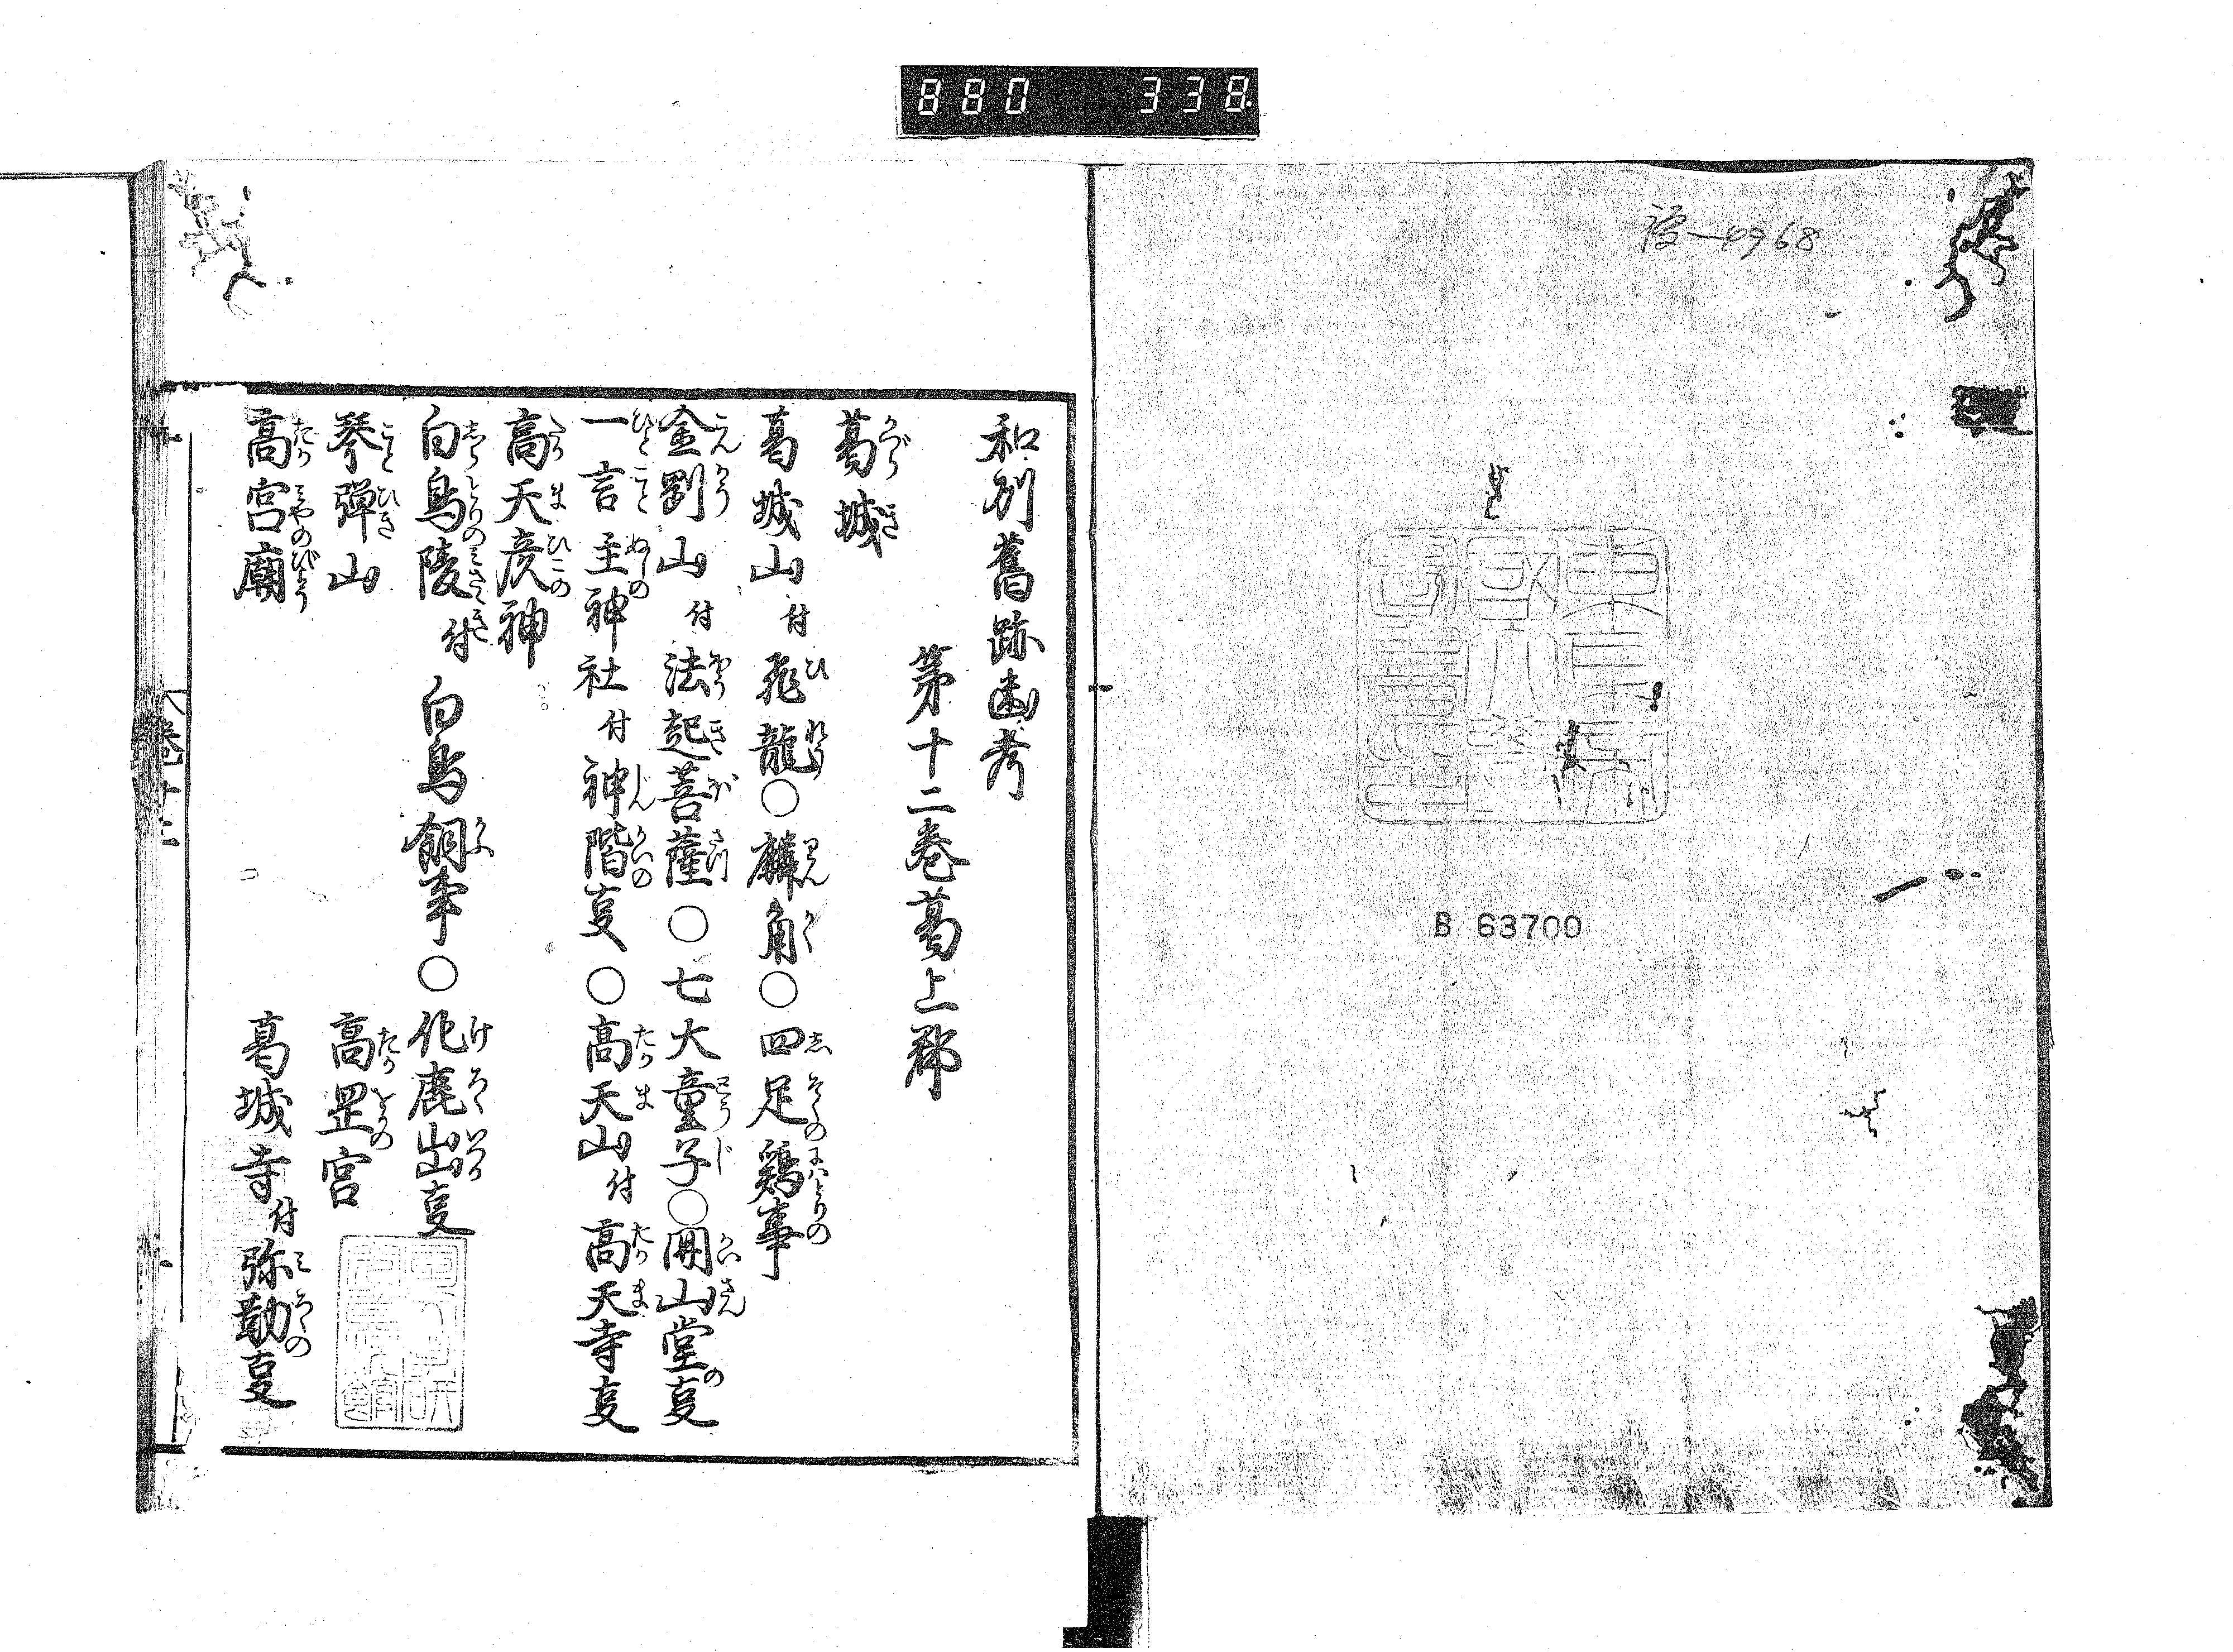 880 338
B 63700
和州舊跡幽考
第十二巻葛上郡
葛城
葛城山 付 飛龍○麟角○四足鶏事
金剛山 付 法起菩薩○七大童子○開山堂㕝
一言主神社 付 神階㕝○高天山付高天寺㕝
高天彦神
白鳥陵 付 白鳥飼事○化鹿出㕝
琴彈山 高岡宮
高宮廟 葛城寺付弥勒㕝